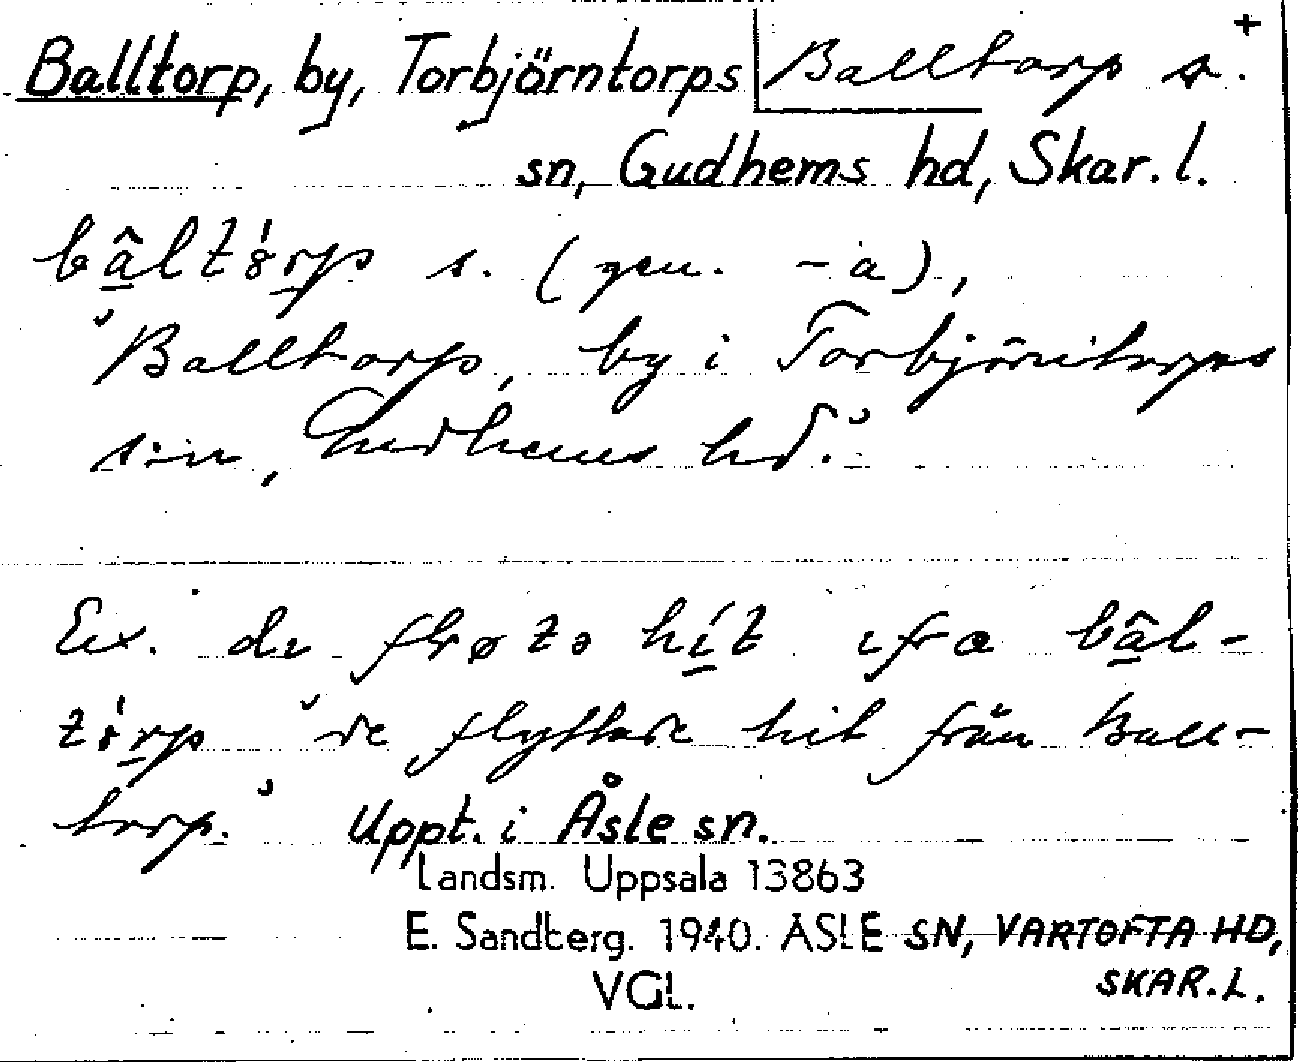 Balltorp, by, Torbjörntorps Balltorp s. +
sn, Gudhems hd, Skar. l.
bâltórp s. (gen. -a),
"Balltorp, by i Torbjörntorps
s:n, Gudhems hd."
Ex. dı fløtə hít ıfra bâl-
tórp "de flyttade hit från Ball-
torp." Uppt. i Åsle sn.
Landsm. Uppsala 13863
E. Sandberg. 1940. ÅSLE SN, VARTOFTA HD,
VGL. SKAR. L.